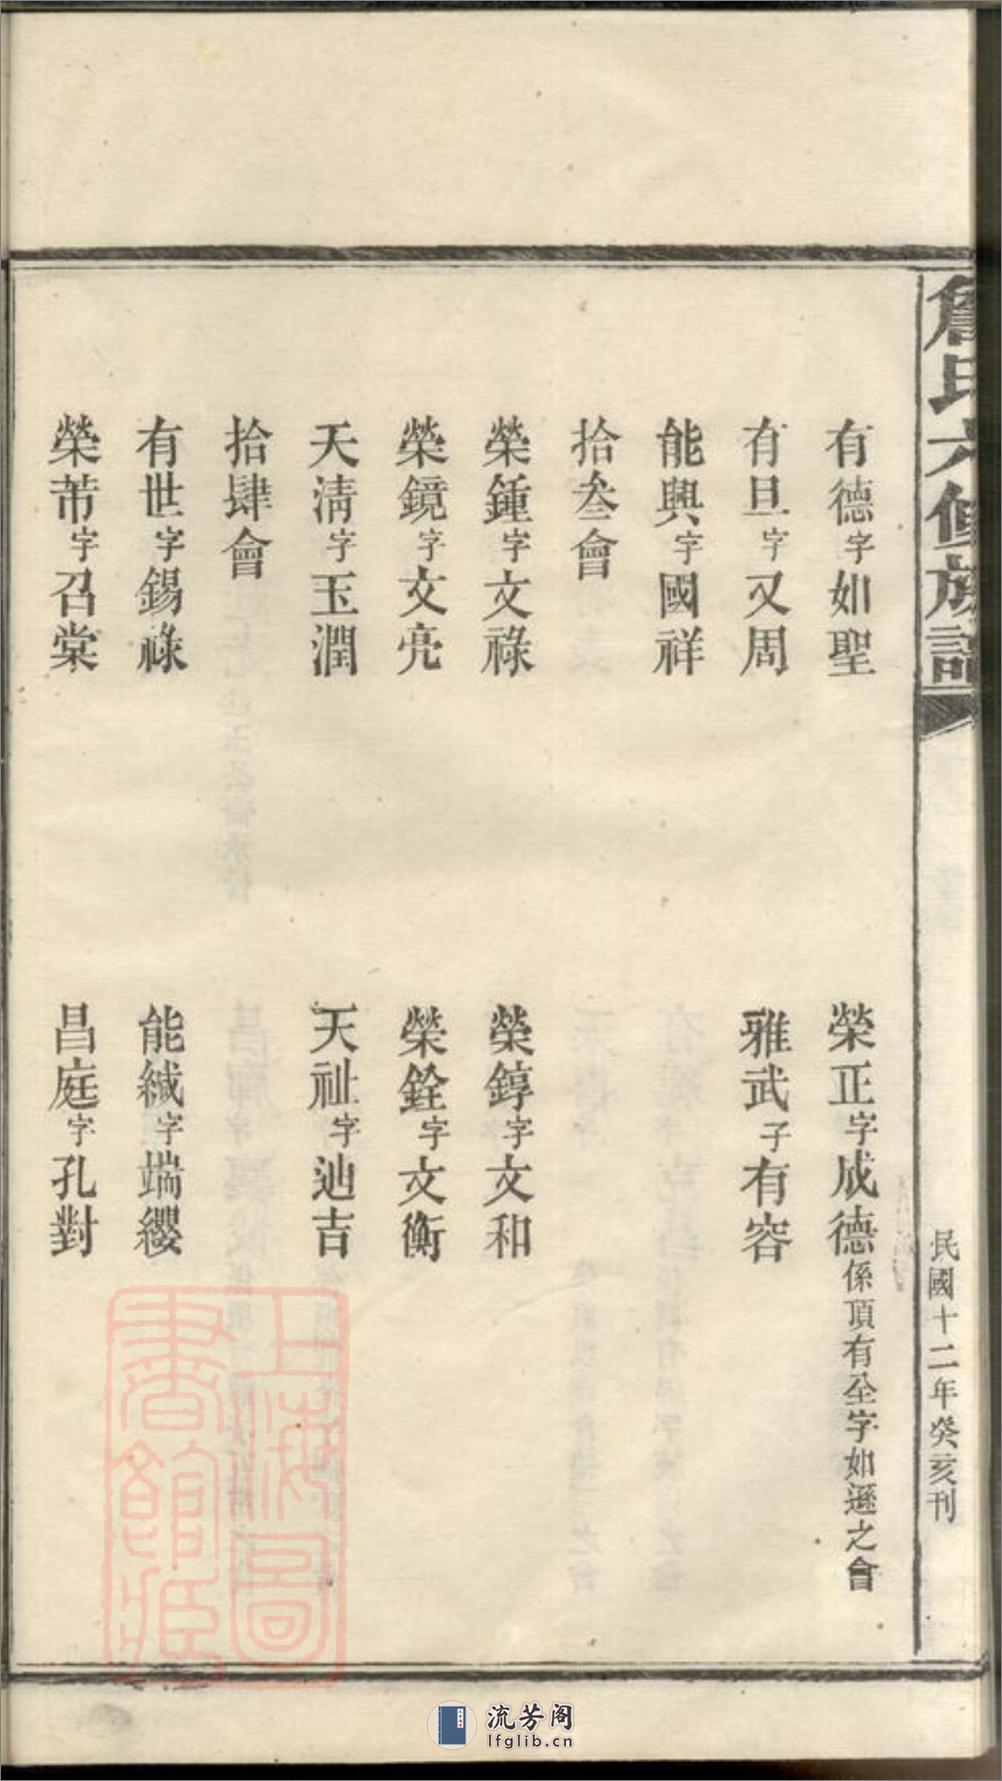 詹氏六修族譜
民國十二年癸亥刊
有德字如聖
榮正字成德係頂有全字如遜之會
有旦字又周
雅武子有容
能興字國祥
拾叄會
榮鍾字文祿
榮錞字文和
榮鏡字文亮
榮銓字文衡
天淸字玉潤
天祉字迪吉
拾肆會
有世字錫祿
能緎字端纓
榮芾字召棠
昌庭字孔對
上海圖書館藏
流芳阁
lfglib.cn